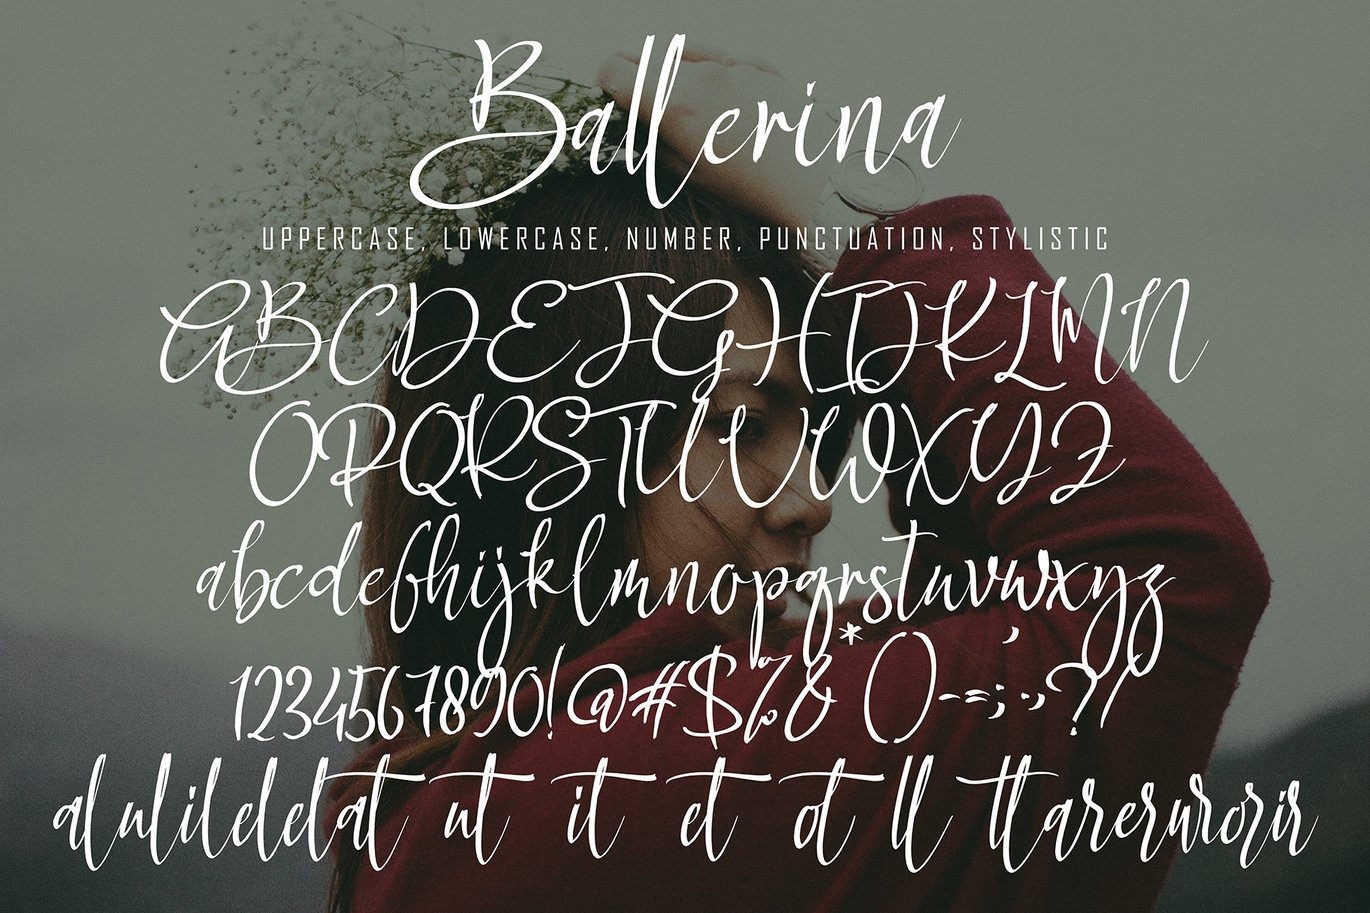 Ballerina
UPPERCASE, LOWERCASE, NUMBER, PUNCTUATION, STYLISTIC
ABCDEFGHIJKLMN
OPQRSTUVWXYZ
abcdefhijklmnopqrstuvwxyz
1234567890!@#$%&*()-=;:,?/
al ul il el et at ut it et ot ll tt ar er ur or ir